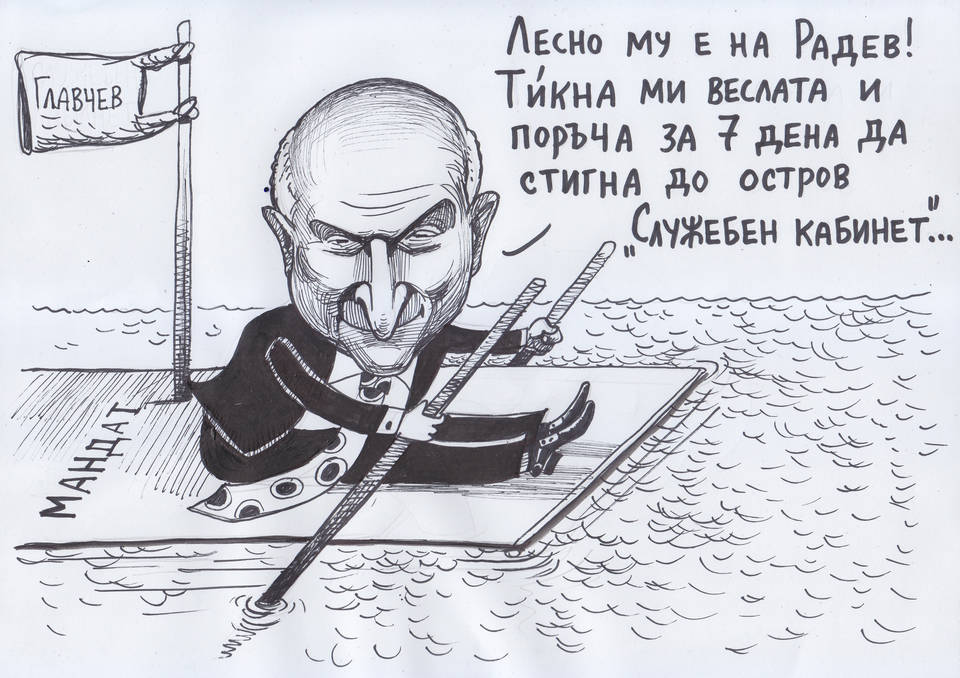 Главчев
Лесно му е на Радев!
Ти́кна ми веслата и
поръча за 7 дена да
стигна до остров
„Служебен кабинет"...
Мандат